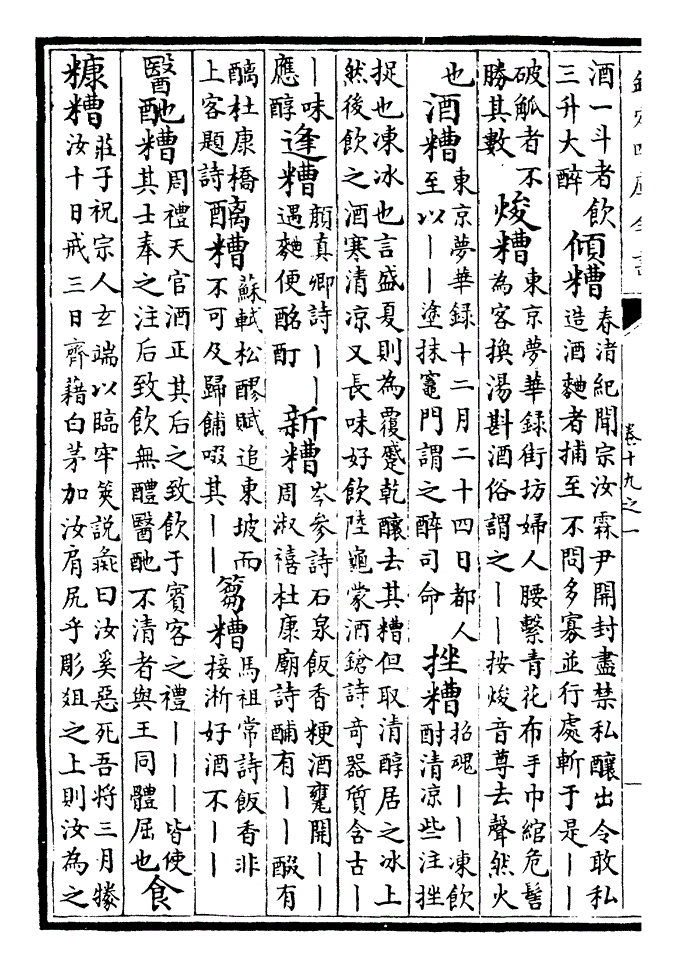 欽定四庫全書
卷十九之一
酒一斗者飲三升大醉 傾糟 春渚紀聞宗汝霖尹開封盡禁私釀出令敢私造酒麯者捕至不問多寡並行處斬于是丨丨
破觚者不勝其數 焌糟 東京夢華錄街坊婦人腰繫青花布手巾綰危髻為客換湯斟酒俗謂之丨丨按焌音尊去聲然火
也 酒糟 東京夢華錄十二月二十四日都人至以丨丨塗抹竈門謂之醉司命 挫糟 招魂丨丨凍飲酎清凉些注挫
捉也凍冰也言盛夏則為覆蹙乾釀去其糟但取清醇居之冰上然後飲之酒寒清凉又長味好飲陸龜蒙酒鎗詩竒器質含古丨
丨味應醇 逢糟 顔真卿詩丨丨遇麯便酩酊 新糟 岑參詩石泉飯香粳酒甕開丨丨周淑禧杜康廟詩酺有丨丨醊有
醨杜康橋上客題詩 醨糟 蘇軾松醪賦追東坡而不可及歸餔啜其丨丨 篘糟 馬祖常詩飯香非接淅好酒不丨丨
醫酏糟 周禮天官酒正其后之致飲于賓客之禮丨丨丨皆使其士奉之注后致飲無醴醫酏不清者與王同體屈也 食
糠糟 莊子祝宗人玄端以臨牢筴說彘曰汝奚惡死吾將三月㹖汝十日戒三日齊藉白茅加汝肩尻乎彫俎之上則汝為之